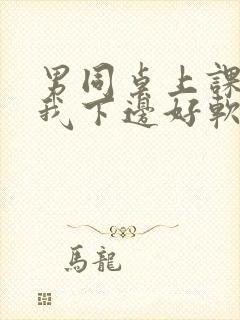 男同桌上課
我下邊好軟
馬龍